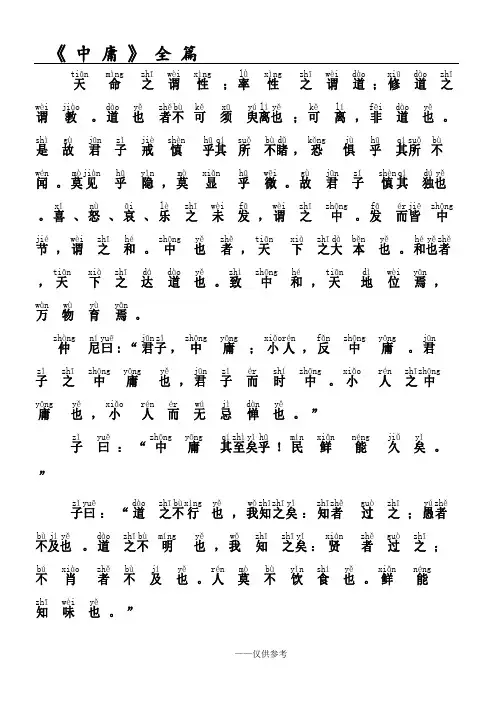 《中庸》全篇
tiān mìng zhī wèi xìng lǜ xìng zhī wèi dào xiū dào zhī
天命之谓性；率性之谓道；修道之
wèi jiào dào yě zhě bù kě xū yú lí yě kě lí fēi dào yě
谓教。道也者不可须臾离也；可离，非道也。
shì gù jūn zǐ jiè shèn hū qí suǒ bù dǔ kǒng jù hū qí suǒ bù
是故君子戒慎乎其所不睹，恐惧乎其所不
wén mò jiàn hū yǐn mò xiǎn hū wēi gù jūn zǐ shèn qí dú yě
闻。莫见乎隐，莫显乎微。故君子慎其独也
xǐ nù āi lè zhī wèi fā wèi zhī zhōng fā ér jiē zhōng
。喜、怒、哀、乐之未发，谓之中。发而皆中
jié wèi zhī hé zhōng yě zhě tiān xià zhī dà běn yě hé yě zhě
节，谓之和。中也者，天下之大本也。和也者
tiān xià zhī dá dào yě zhì zhōng hé tiān dì wèi yān
，天下之达道也。致中和，天地位焉，
wàn wù yù yān
万物育焉。
zhòng ní yuē jūn zǐ zhōng yōng xiǎo rén fǎn zhōng yōng jūn
仲尼曰：“君子，中庸；小人，反中庸。君
zǐ zhī zhōng yōng yě jūn zǐ ér shí zhōng xiǎo rén zhī zhōng
子之中庸也，君子而时中。小人之中
yōng yě xiǎo rén ér wú jì dàn yě
庸也，小人而无忌惮也。”
zǐ yuē zhōng yōng qí zhì yǐ hū mín xiǎn néng jiǔ yǐ
子曰：“中庸其至矣乎！民鲜能久矣。
”
zǐ yuē dào zhī bù xíng yě wǒ zhī zhī yǐ zhī zhě guò zhī yú zhě
子曰：“道之不行也，我知之矣：知者过之；愚者
bù jí yě dào zhī bù míng yě wǒ zhī zhī yǐ xián zhě guò zhī
不及也。道之不明也，我知之矣：贤者过之；
bú xiào zhě bù jí yě rén mò bù yǐn shí yě xiǎn néng
不肖者不及也。人莫不饮食也。鲜能
zhī wèi yě
知味也。”
——仅供参考